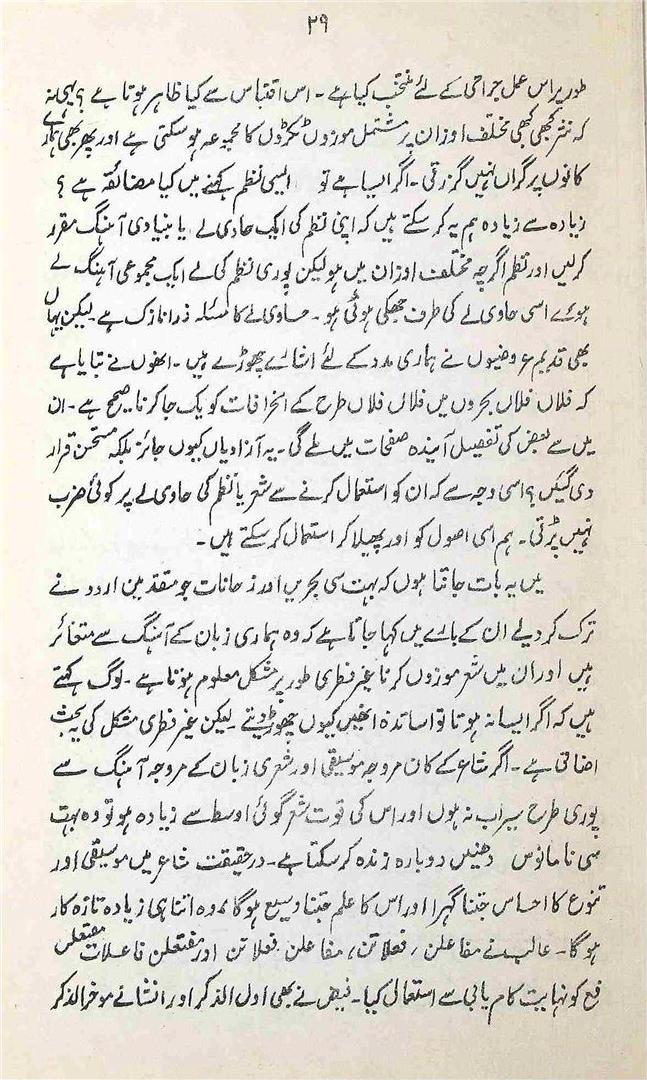 ۲۹
طور پر اس عمل جراحی کے لئے منتخب کیا ہے ۔ اس اقتباس سے کیا ظاہر ہوتا ہے ؟ یہی نہ
کہ نثر کبھی کبھی مختلف اوزان پر مشتمل موزوں ٹکڑوں کا مجموعہ ہو سکتی ہے اور پھر بھی ہمارے
کانوں پر گراں نہیں گزرتی ۔ اگر ایسا ہے تو ایسی نظم کہنے میں کیا مضائقہ ہے ؟
زیادہ سے زیادہ ہم یہ کر سکتے ہیں کہ اپنی نظم کی ایک حاوی لے یا بنیادی آہنگ مقرر
کر لیں اور نظم اگرچہ مختلف اوزان میں ہو لیکن پوری نظم کی لے ایک مجموعی آہنگ لے
ہوئے اسی حاوی لے کی طرف جھکی ہوئی ہو ۔ حاوی لے کا مسئلہ ذرا نازک ہے ۔ لیکن یہاں
بھی قدیم عروضیوں نے ہماری مدد کے لئے اشارے چھوڑے ہیں ۔ انھوں نے بتایا ہے
کہ فلاں فلاں بحروں میں فلاں فلاں طرح کے انحرافات کو یک جا کرنا صحیح ہے ۔ ان
میں سے بعض کی تفصیل آیندہ صفحات میں ملے گی ۔ یہ آزادیاں کیوں جائز بلکہ مستحسن قرار
دی گئیں ؟ اسی وجہ سے کہ ان کو استعمال کرنے سے شعر یا نظم کی حاوی لے پر کوئی ضرب
نہیں پڑتی ۔ ہم اسی اصول کو اور پھیلا کر استعمال کر سکتے ہیں ۔
میں یہ بات جانتا ہوں کہ بہت سی بحریں اور زحافات جو متقدمین اردو نے
ترک کر دیے ان کے بارے میں کہا جاتا ہے کہ وہ ہماری زبان کے آہنگ سے متغائر
ہیں اور ان میں شعر موزوں کرنا غیر فطری طور پر مشکل معلوم ہوتا ہے ۔ لوگ کہتے
ہیں کہ اگر ایسا نہ ہوتا تو اساتذہ انھیں کیوں چھوڑ دیتے ۔ لیکن غیر فطری مشکل کی یہ بحث
اضافی ہے ۔ اگر شاعر کے کان مروجہ موسیقی اور شعری زبان کے مروجہ آہنگ سے
پوری طرح سیراب نہ ہوں اور اس کی قوت شعر گوئی اوسط سے زیادہ ہو تو وہ بہت
سی نامانوس دھنیں دوبارہ زندہ کر سکتا ہے ۔ در حقیقت شاعر میں موسیقی اور
تنوع کا احساس جتنا گہرا اور اس کا علم جتنا وسیع ہوگا ، وہ اتنا ہی زیادہ تازہ کار
ہوگا ۔ غالب نے مفاعلن ، فعلاتن ، مفاعلن فعلاتن اور مفتعلن فاعلات مفتعلن
فع کو نہایت کام یابی سے استعمال کیا ۔ فیض نے بھی اول الذکر اور انشا نے موخر الذکر